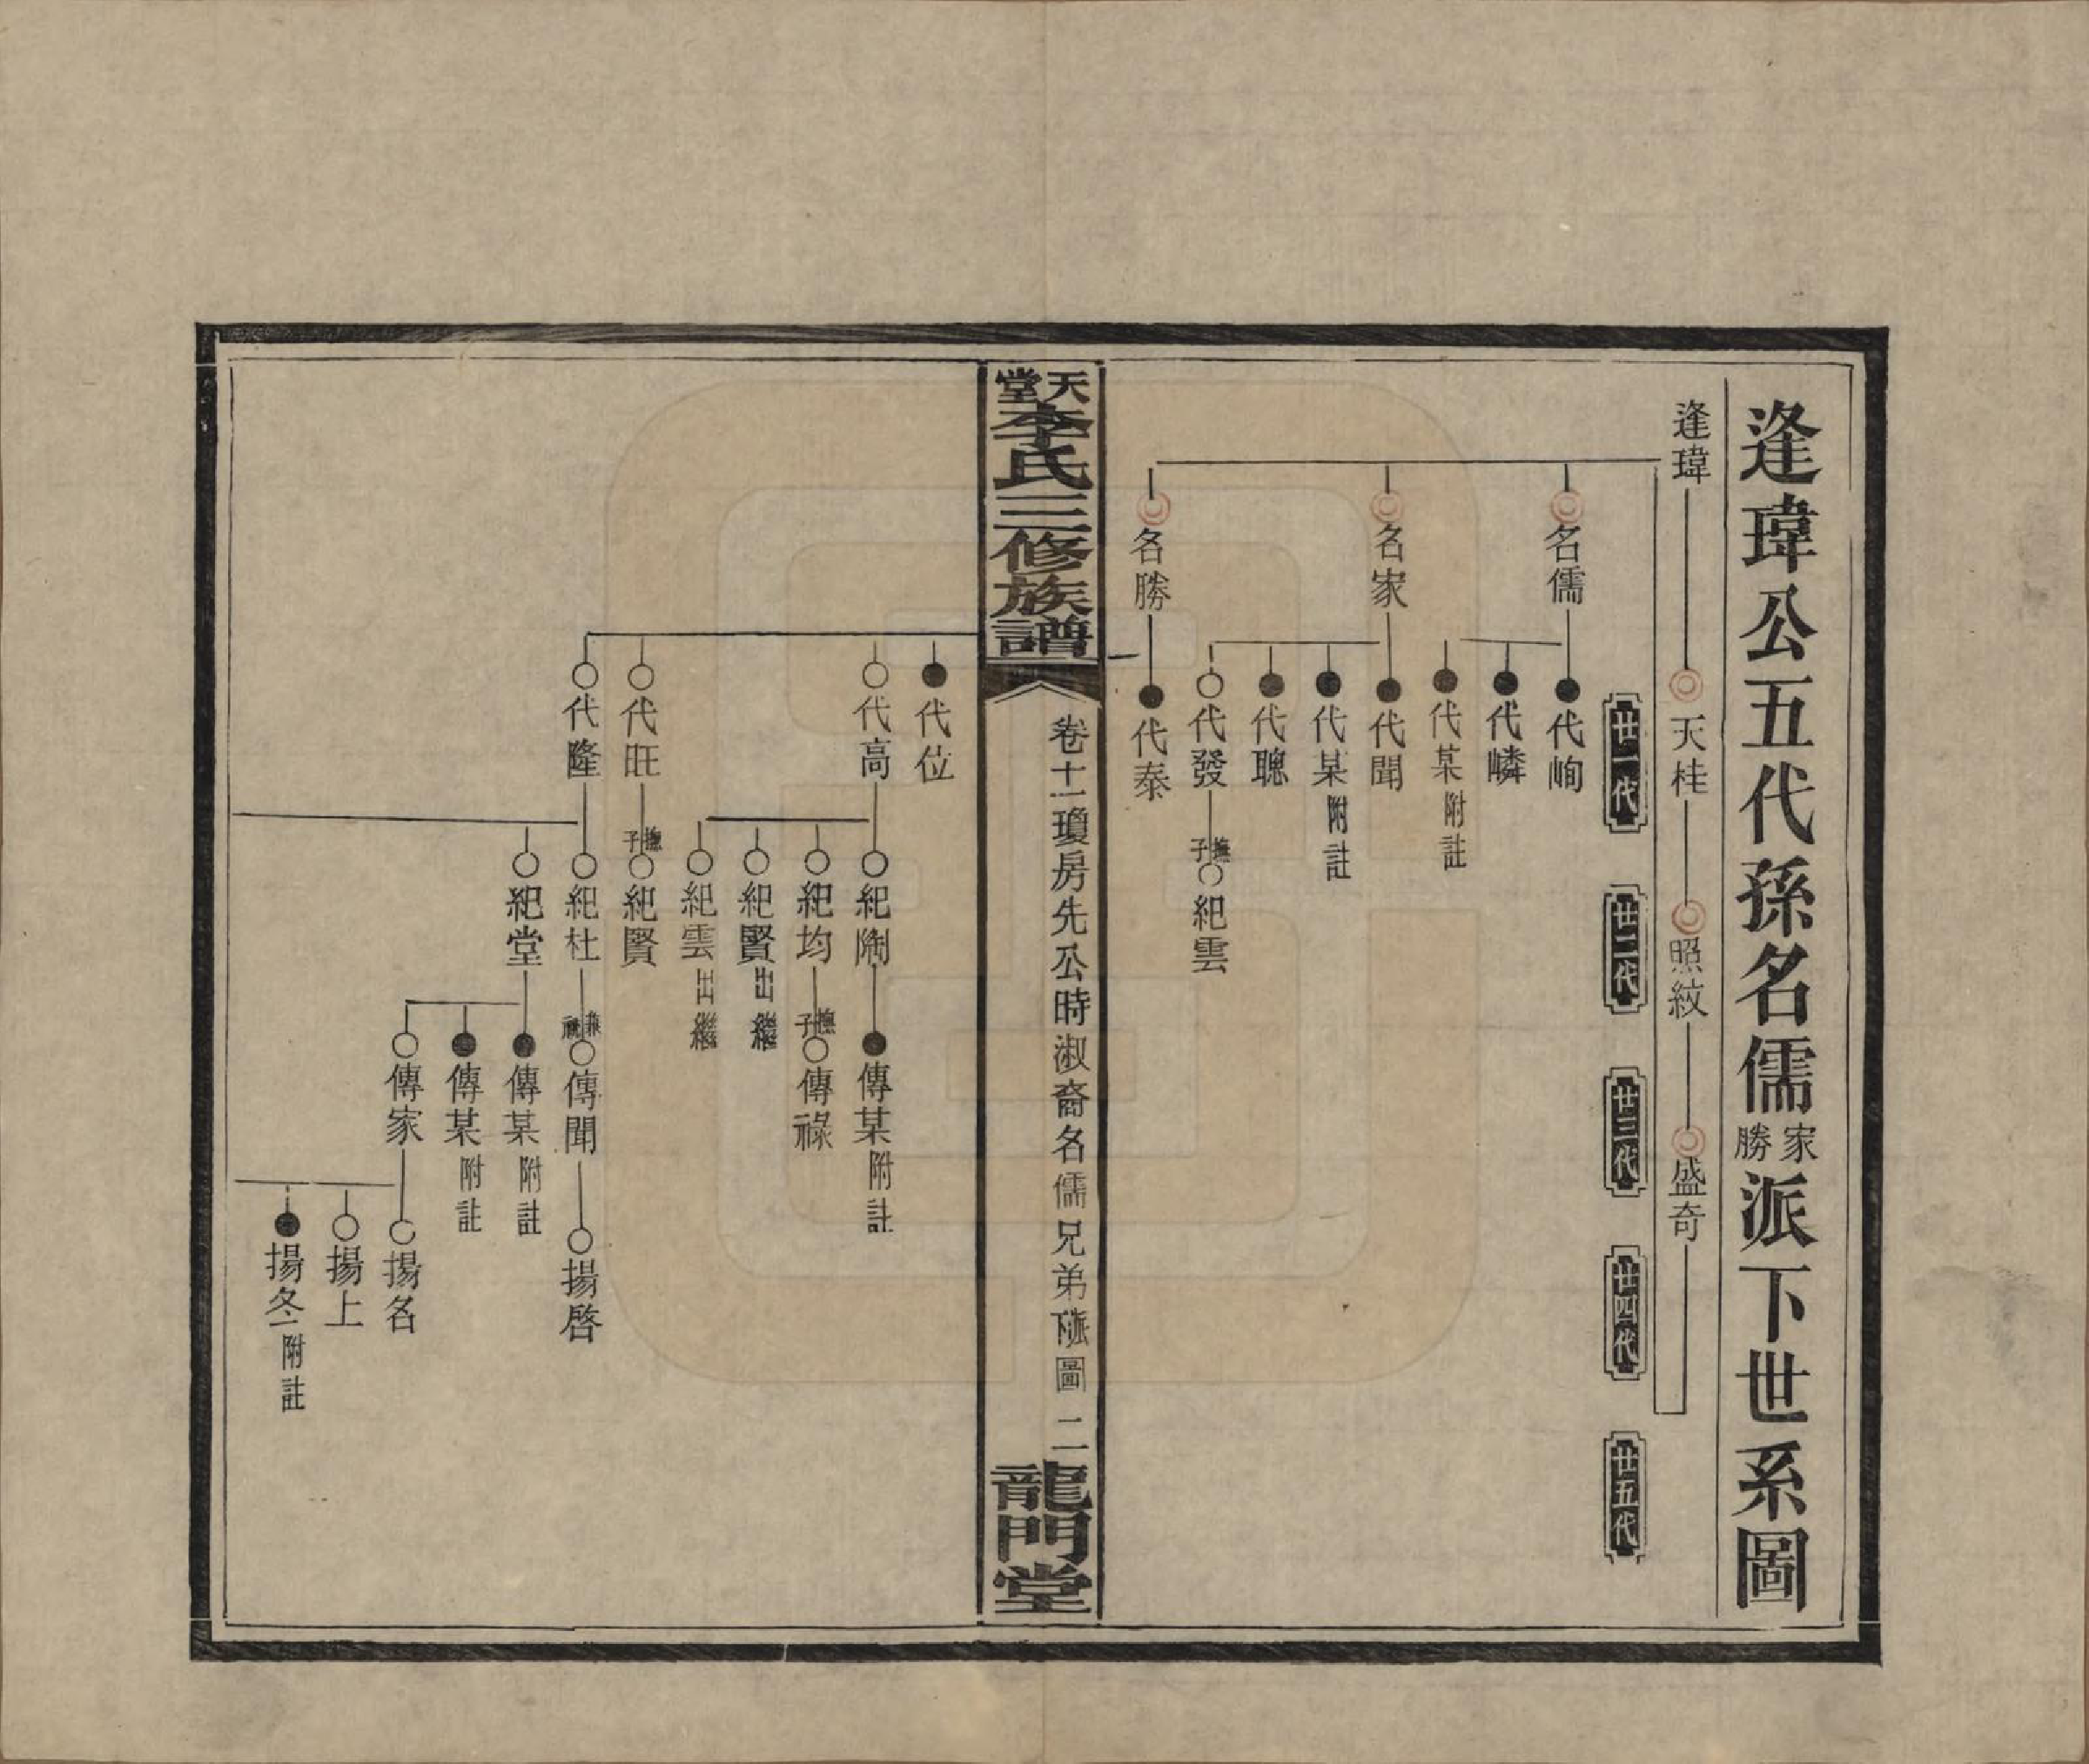 逢瑋公五代孫名儒家勝派下世系圖
逢瑋
天桂
照紋
盛奇
廿一代
廿二代
廿三代
廿四代
廿五代
名儒
代峋
代嶙
代某附註
名家
代聞
代某附註
代聰
代發
撫子
紀雲
名勝
代泰
天堂李氏三修族譜
卷十一瓊房先公時淑裔名儒兄弟派下圖
二
龍門堂
代位
代高
紀陶
傳某附註
紀均
撫子
傳祿
紀賢出繼
紀雲出繼
代旺
撫子
紀賢
代隆
紀杜
兼祧
傳聞
揚啓
紀堂
傳某附註
傳某附註
傳家
揚名
揚上
揚冬附註